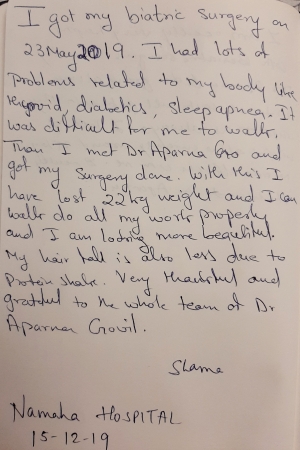 I got my biatric surgery on
23 May 2019. I had lots of
problems related to my body like
thyroid, diabetics, sleepapnea. It
was difficult for me to walk,
Than I met Dr Aparna Gro and
got my surgery done. With this I
have lost 22 kg weight and I can
walk do all my work properly
and I am looking more beautiful.
My hair fall is also less due to
Protein shake. Very thankful and
grateful to the whole team of Dr
Aparna Govil.
Shama
Namaha HOSPITAL
15-12-19